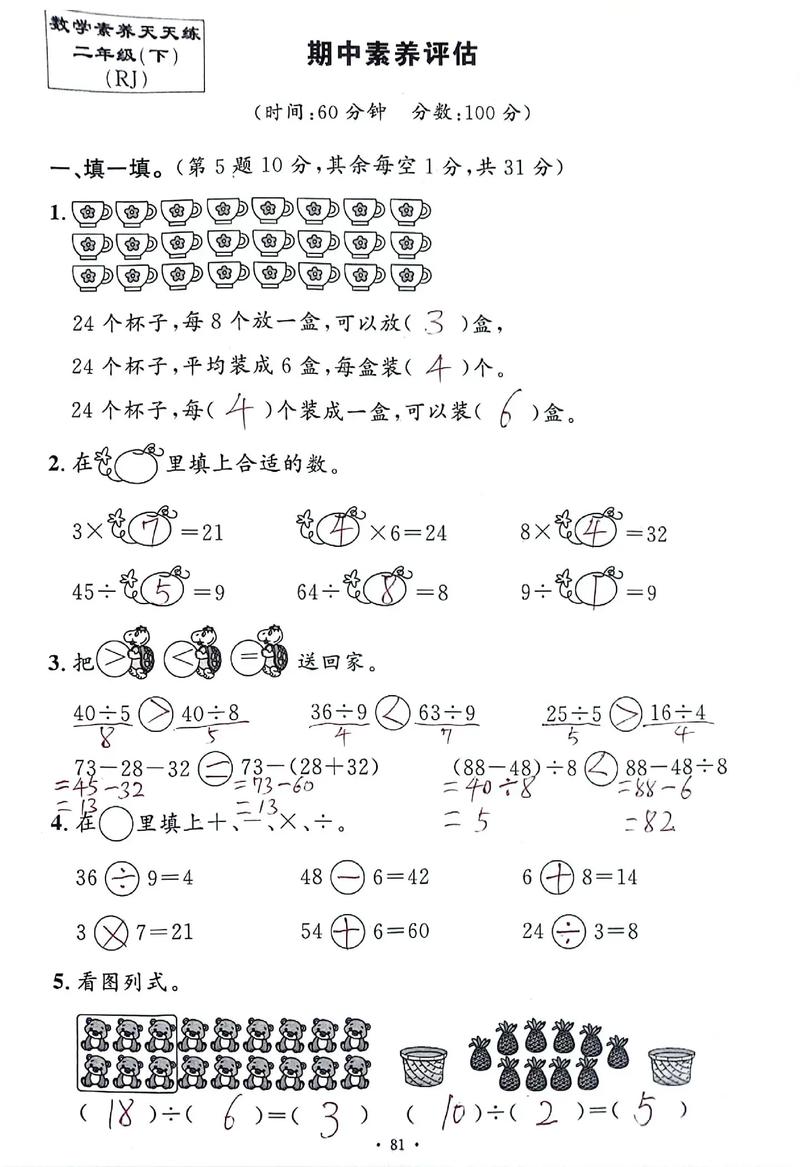 数学素养天天练
二年级(下)
(RJ)
期中素养评估
(时间:60分钟 分数:100分)
一、填一填。(第5题10分,其余每空1分,共31分)
1.
24个杯子,每8个放一盒,可以放( 3 )盒,
24个杯子,平均装成6盒,每盒装( 4 )个。
24个杯子,每( 4 )个装成一盒,可以装( 6 )盒。
2.在 里填上合适的数。
3×7=21 4×6=24 8×4=32
45÷5=9 64÷8=8 9÷1=9
3.把 > < = 送回家。
40÷5 > 40÷8 36÷9 < 63÷9 25÷5 > 16÷4
8 5 4 7 5 4
73-28-32 = 73-(28+32) (88-48)÷8 < 88-48÷8
=45-32 =73-60 =40÷8 =88-6
=13 =13 =5 =82
4.在○里填上+、-、×、÷。
36÷9=4 48-6=42 6+8=14
3×7=21 54+6=60 24÷3=8
5.看图列式。
( 18 )÷( 6 )=( 3 ) ( 10 )÷( 2 )=( 5 )
·81·